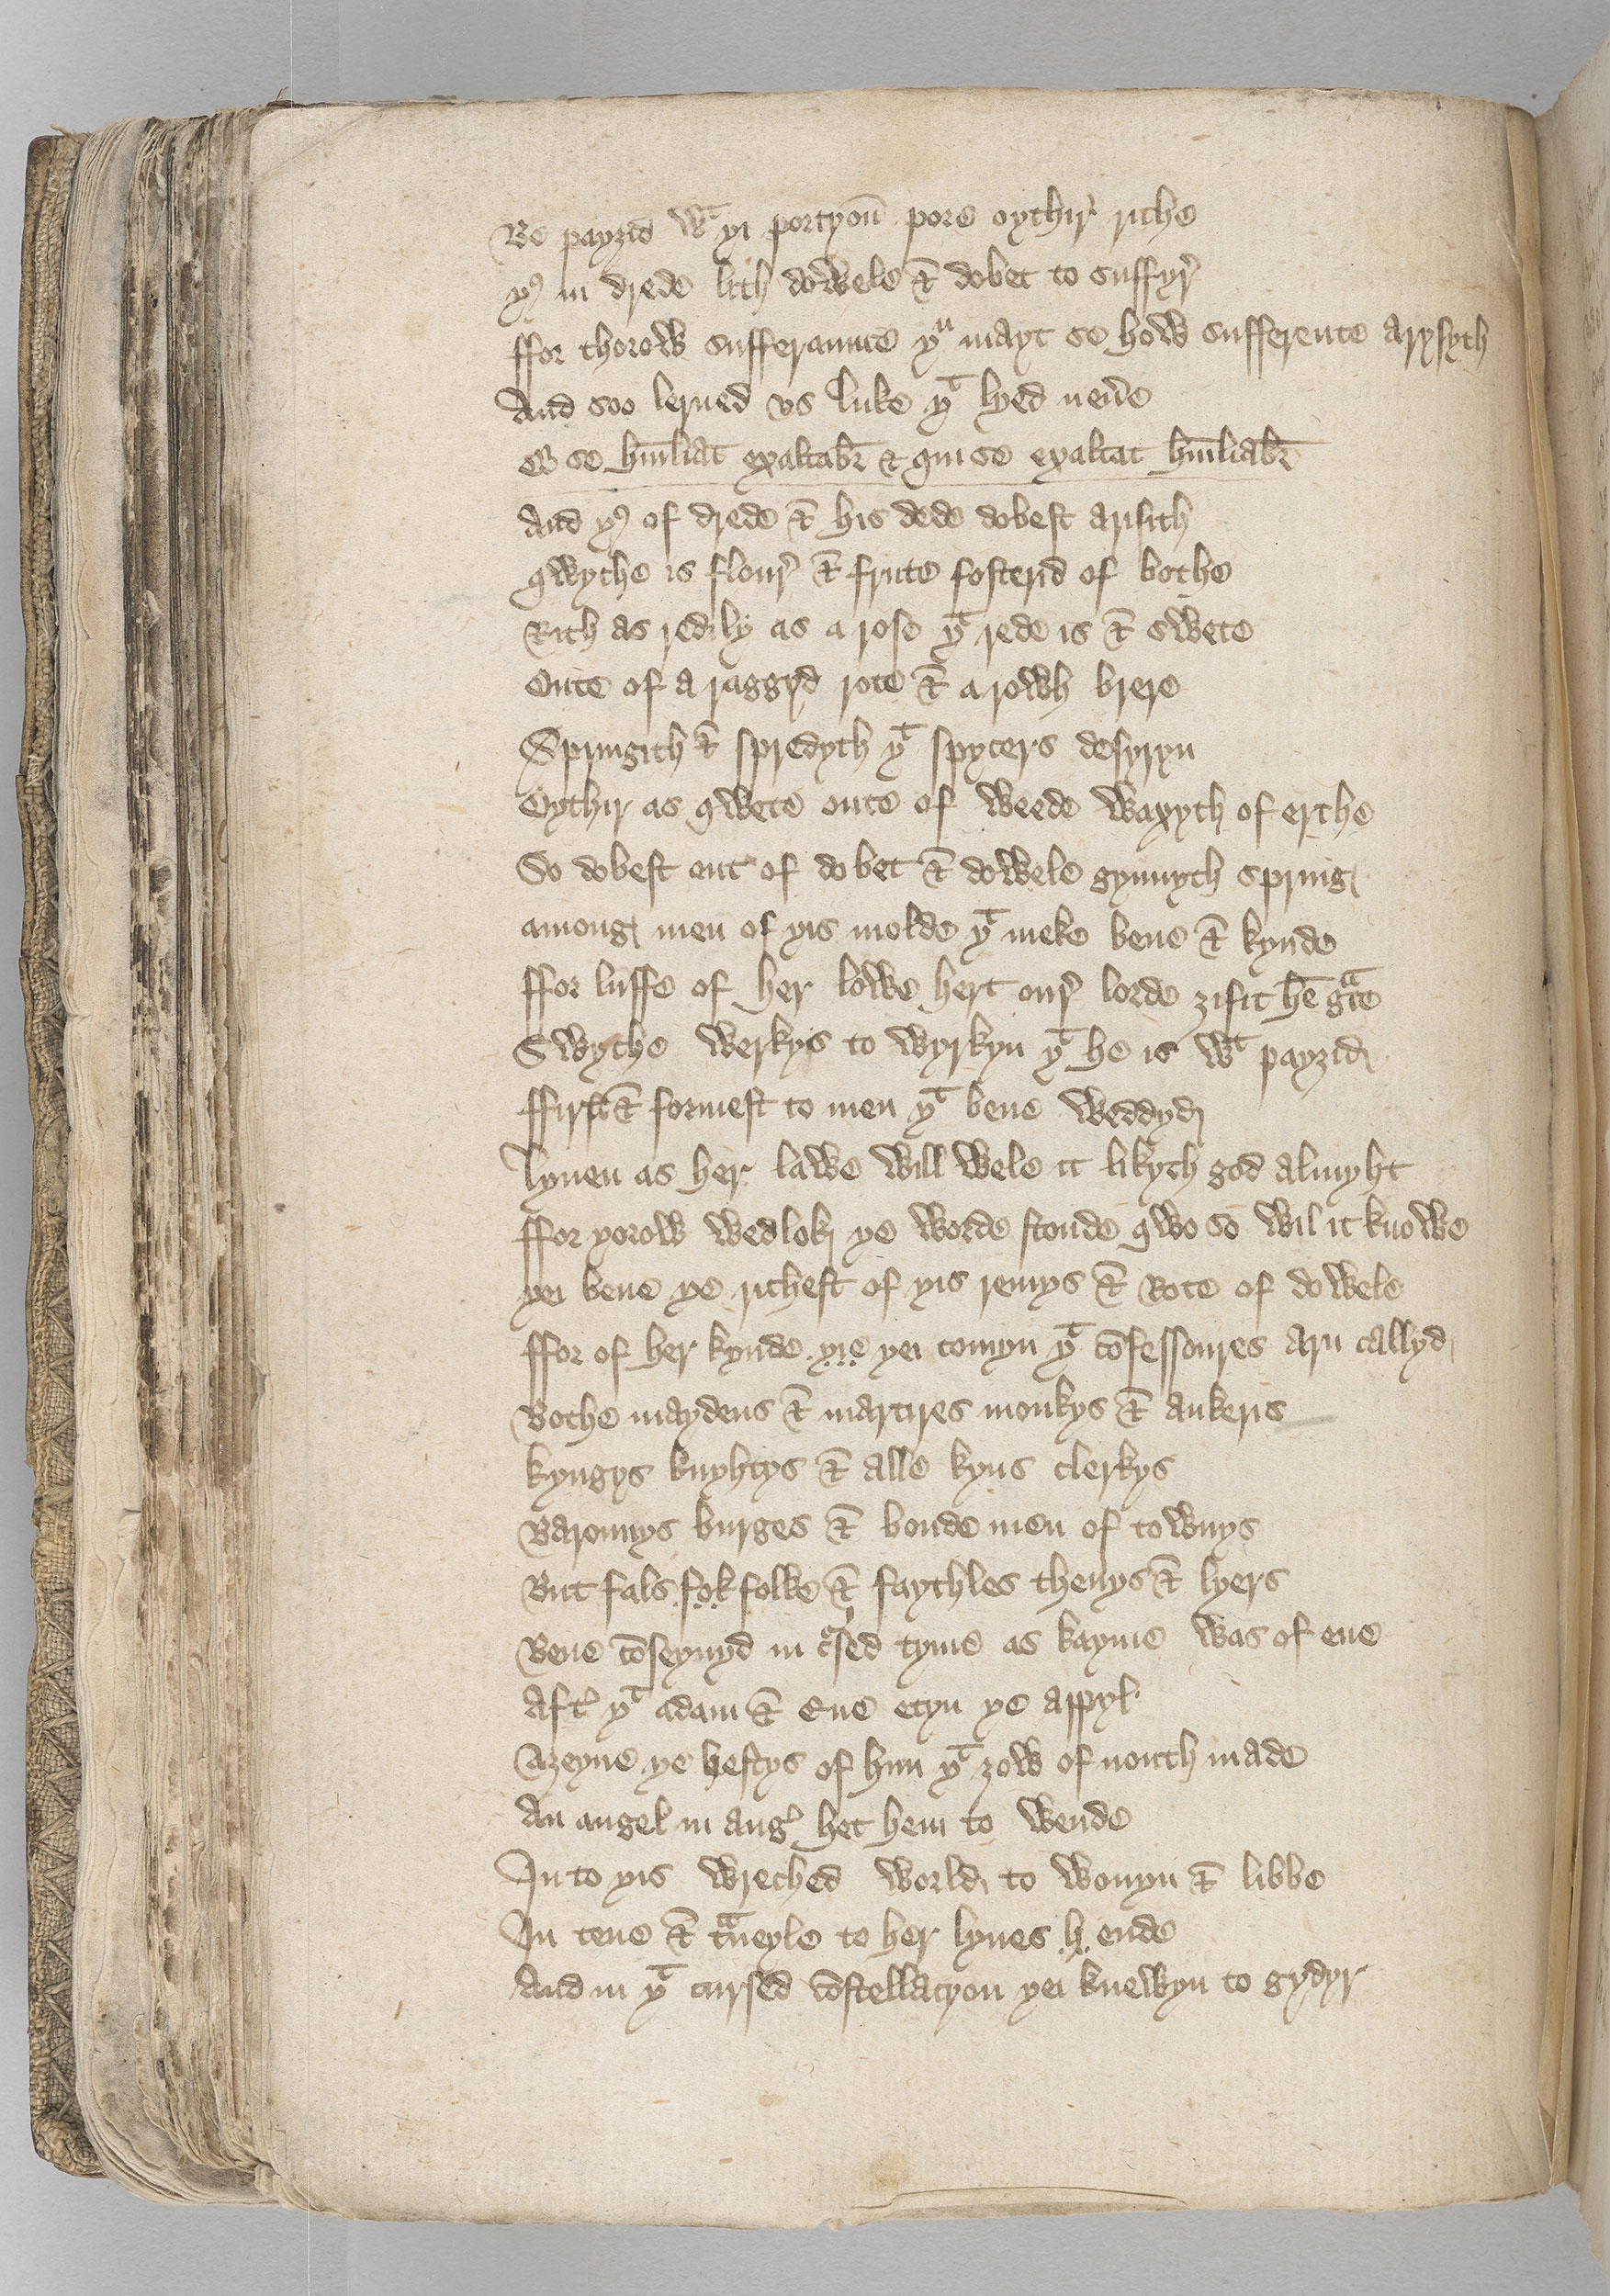 Be payzid wt yi portyoun pore oythir riche
yus in drede lith dowele & dobet to suffyr
ffor thorow sufferaunce yu mayt se how sufference arysyth
And soo lerned us luke yt lyed neuere
Qi se humiliat exaltabitur & qui se exaltat humiliabitur
And yus of drede & his dede dobest arisith
qwyche is flour & frute fosterid of bothe
Rith as redily as a rose yt rede is & swete
Oute of a raggyd rote & a rowh brere
Springith & spredyth yt spycers desyryn
Oythir as qwete oute of weede waxyth of erthe
So dobest out of do bet & dowele gynnyth spring
among men of yis molde yt meke bene & kynde
ffor luffe of her lowe hert our lorde zifit hem grace
Swyche werkys to wyrkyn yt he is wt payzid
ffirst & formest to men yt bene weddyd
lyuen as her lawe will wele it likyth god almyht
ffor yorow wedlok ye worde stonde qwo so wil it knowe
yei bene ye richest of yis remys & Rote of dowele
ffor of her kynde yie yei comyn yt confessoures arn callyd
Bothe maydens & martires monkys & ankeris
kyngys knyhtys & alle kyns clerkys
Barounys burges & bonde men of townys
But fals fok folke & faythles theuys & lyers
Bene conseyuyd in cursed tyme as kayme was of eue
Aftir yt adam & Eue etyn ye appyl
Azeyne ye hestys of him yt zow of nouth made
An angel in anger het hem to wende
In to yis wreched world to wonyn & libbe
In tene & traueyle to her lyues h ende
And in yt cursed constellacyon yei knewyn to gydyr